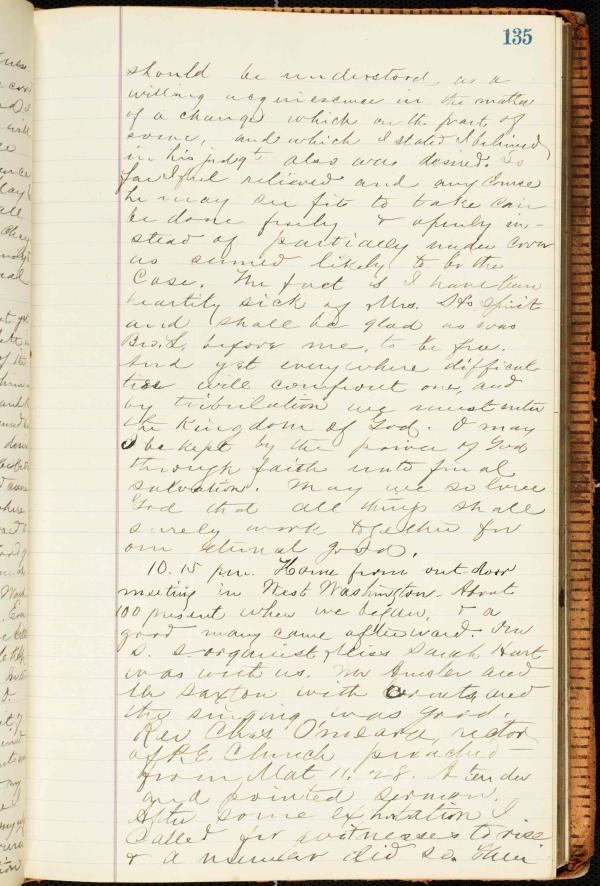 135
should be understood as a
willing acquiescence in the matter
of a change which on the part of
some, and which I stated I believed
in his judgt also was desired. So
far I feel relieved and any course
he may see fit to take can
be done freely & openly in-
stead of partially under cover
as seemed likely to be the
Case. The fact is I have been
heartily sick of Mrs. spirit
and shall be glad as was
Bro. L. before me, to be free.
And yet everywhere difficul
ties will confront one, and
by tribulation we must enter
the Kingdom of God. O may
I be kept by the power of God
through faith unto final
salvation. May we so love
God that all things shall
surely work together for
our eternal good.
10.15 p.m. Home from out-door
meeting in West Washington. About
100 present when we began, & a
good many came afterward. Our
S. S. organist Miss Sarah Hart
was with us. Mr and
Mr Saxton with cornets, and
the singing was good.
Rev Chas O'meara, rector
of P.E. Church preached
from Mat 11, 28. A tender
and pointed sermon.
After some exhortation I
called for witnesses to rise
& a number did so. Their